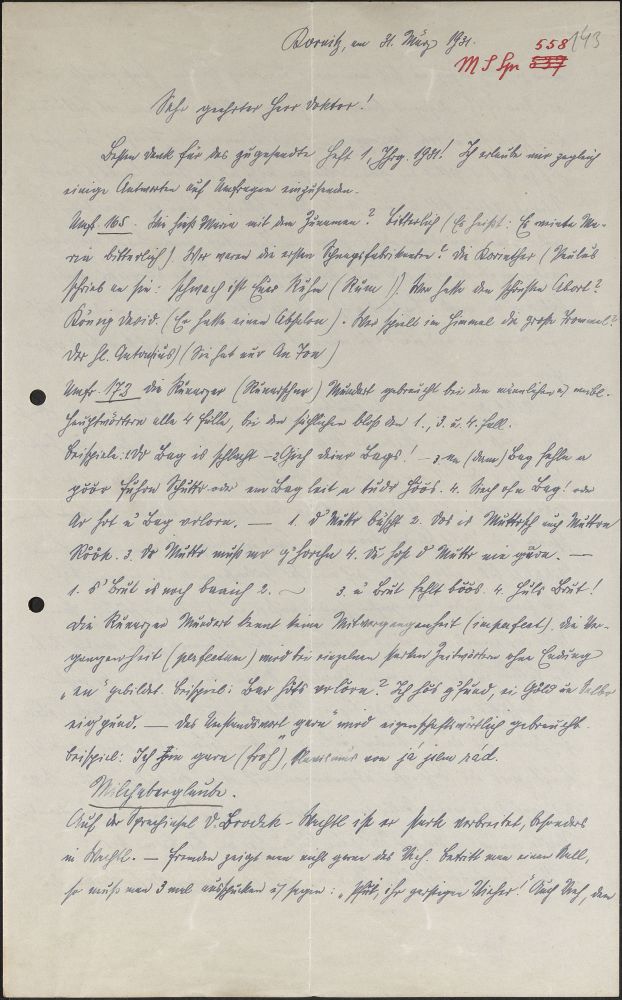 Kornitz, am 31. März 1931.
558 143
M S Spr 537
Sehr geehrter Herr Doktor!
Besten Dank für das zugesandte Heft 1, Jhrg. 1931! Ich erlaube mir zugleich
einige Antworten auf Umfragen einzusenden.
Umf. 165. Wie hieß Maria mit dem Zunamen? Bitterlich (Es heißt: Es weinte Ma-
ria bitterlich). Wer waren die ersten Schnapsfabrikanten? Die Korinther (Paulus
schrieb an sie: schwach ist Euer Ruhm (Rum)). Wer hatte den schönsten Abort?
König David. (Er hatte einen Absalon). Wer spielt im Himmel die große Trommel?
Der hl. Antonius) (Sie hat nur An Ton)
Umfr. 173 Die Runarzer (Runarscher) Mundart gebraucht bei den männlichen u. weibl.
Hauptwörtern alle 4 Fälle, bei den sächlichen bloß den 1., 3. u. 4. Fall.
Beispiele: 1. Do Bag is schlecht – 2. Gieh deiner Bags! – 3. (dam) Bag fehln a
Fuhrn Schuttr oder em Bag leit a tudr Hoos. 4. Bag! oder
Ar hot u Bag verlorn. — 1. d' Muttr 2. Dos is Muttrsch
Rook. 3. Dr Muttr muß mr g'horchn 4. Du host d' Muttr nie garn. —
1. s' Brut is noch 2. ~ 3. u Brut fehlt 4. Huls Brut!
Die Runarzer Mundart kennt keine Mitvergangenheit (imperfect). Die Ver-
gangenheit (perfectum) wird bei einzelnen starken Zeitwörtern ohne Endung
„en" gebildet. Beispiel: Bar hots verlorn? Ich hos g'fund,
— Das Umstandswort „gern" wird eigenschaftswörtlich gebraucht.
Beispiel: Ich bin garn (froh), von já jsem rád.
Milchaberglaube.
Auf der Sprachinsel D. Brodek – Wachtl ist er stark verbreitet, besonders
in Wachtl. — Fremden zeigt man nicht gerne das Vieh. Betritt man einen Stall,
so muß man 3 mal ausspucken u. sagen: „Pfui, ihr garstigen Viecher! Auch Vieh, den